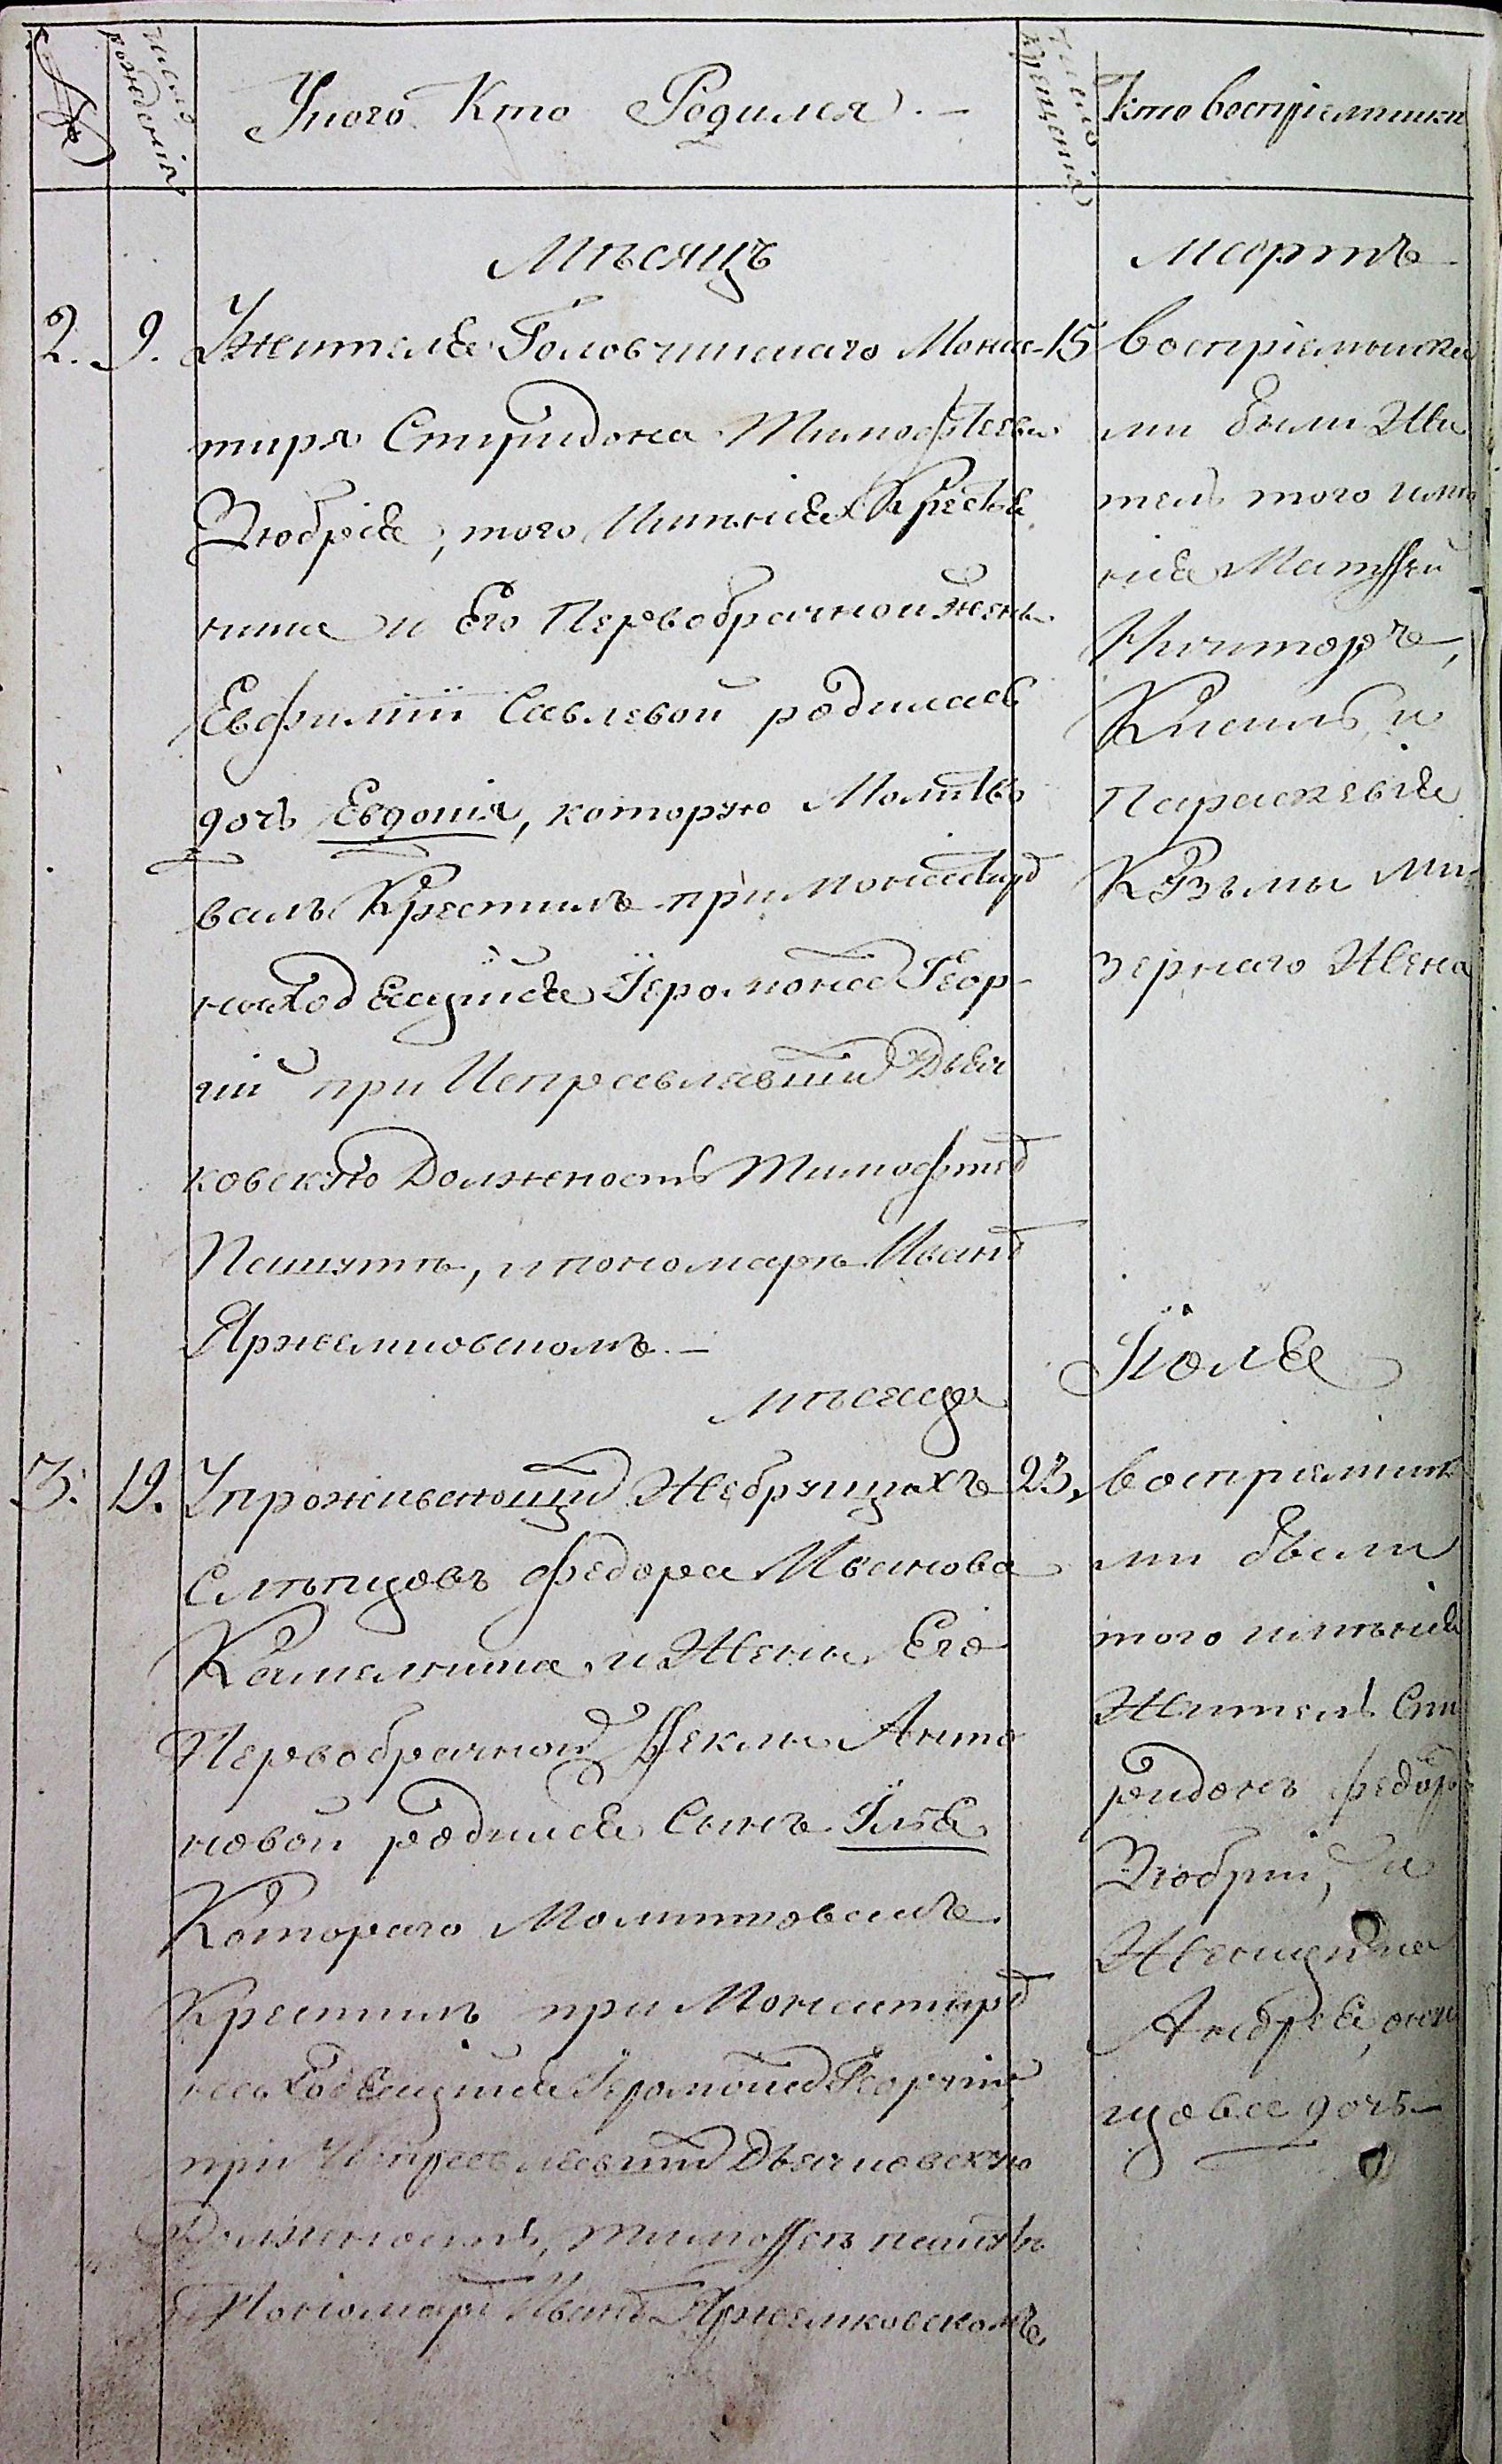 число рожденія
Уного Кто Родился.
число крещенія
Кто воспріемники
Мѣсяцъ
мартъ
2.
9.
Ужителя Головчинскаго Монас-
тиря Спиридона Тимофѣева
Зюбрія, того Имѣнія Крестья
нина и Его Первобрачной жены
Евфиміи Савлевой родилась
дочь Евдокія, которую Молитво
валъ Крестилъ при монастырѣ
находящійся Іеромонах Геор-
гій при Исправлявши Дьяч
ковскую Должность Тимофѣе
Пашутѣ, и пономарѣ Иванѣ
Яржемковскомъ.
15
воспріемника
ми были Жи
тель того имѣ
нія Матѳей
Ничипоръ,
Кисиль, и
Параскевія
Кузьмы Ми-
зернаго Жена
мѣсяца
Іюля
3.
19.
Упроживающи Жебрущихъ
слѣпцовъ Федора Иванова
Кашельника и Жены Его
Первобрачной Ѳеклы Анто
новой родился Сынъ Ілья
Котораго Молитвовалъ
Крестилъ при Монастирѣ
находящійся Іеромонах Георгій,
при Исправлявши Дьячковскую
Должность, Тимоѳеѣ пашутѣ
и Пономарѣ Иванѣ Яржемковскомъ
23.
воспріемника
ми были
того имѣнія
Житель Спи
ридонъ Федоръ
Зюбрій, и
Женщина
Андрея,
цова дочь